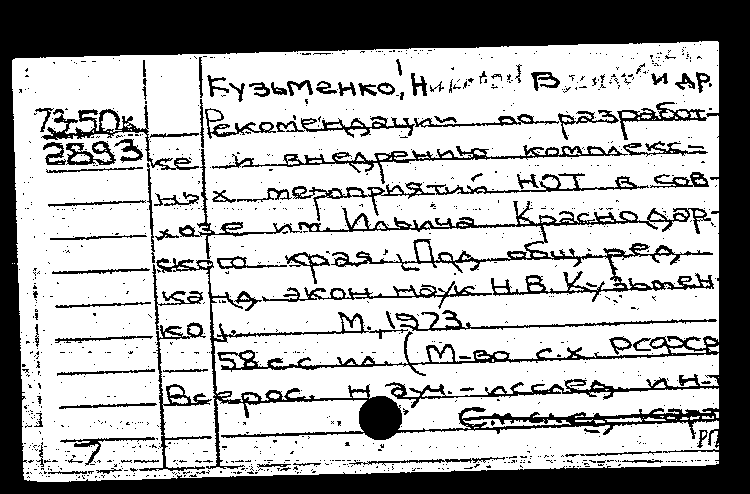 Кузьменко, Николай В и др.
73-50к Рекомендации по разработ-
2893 ке и внедрению комплекс-
ных мероприятий НОТ в сов-
хозе им. Ильича Краснодар-
ского края. [Под общ. ред.
канд. экон. наук Н.В. Кузьмен-
ко]. М., 1973.
58 с. с ил. (М-во с.х. РСФСР
Всерос. науч.-исслед. ин-т
См. след. карт
7